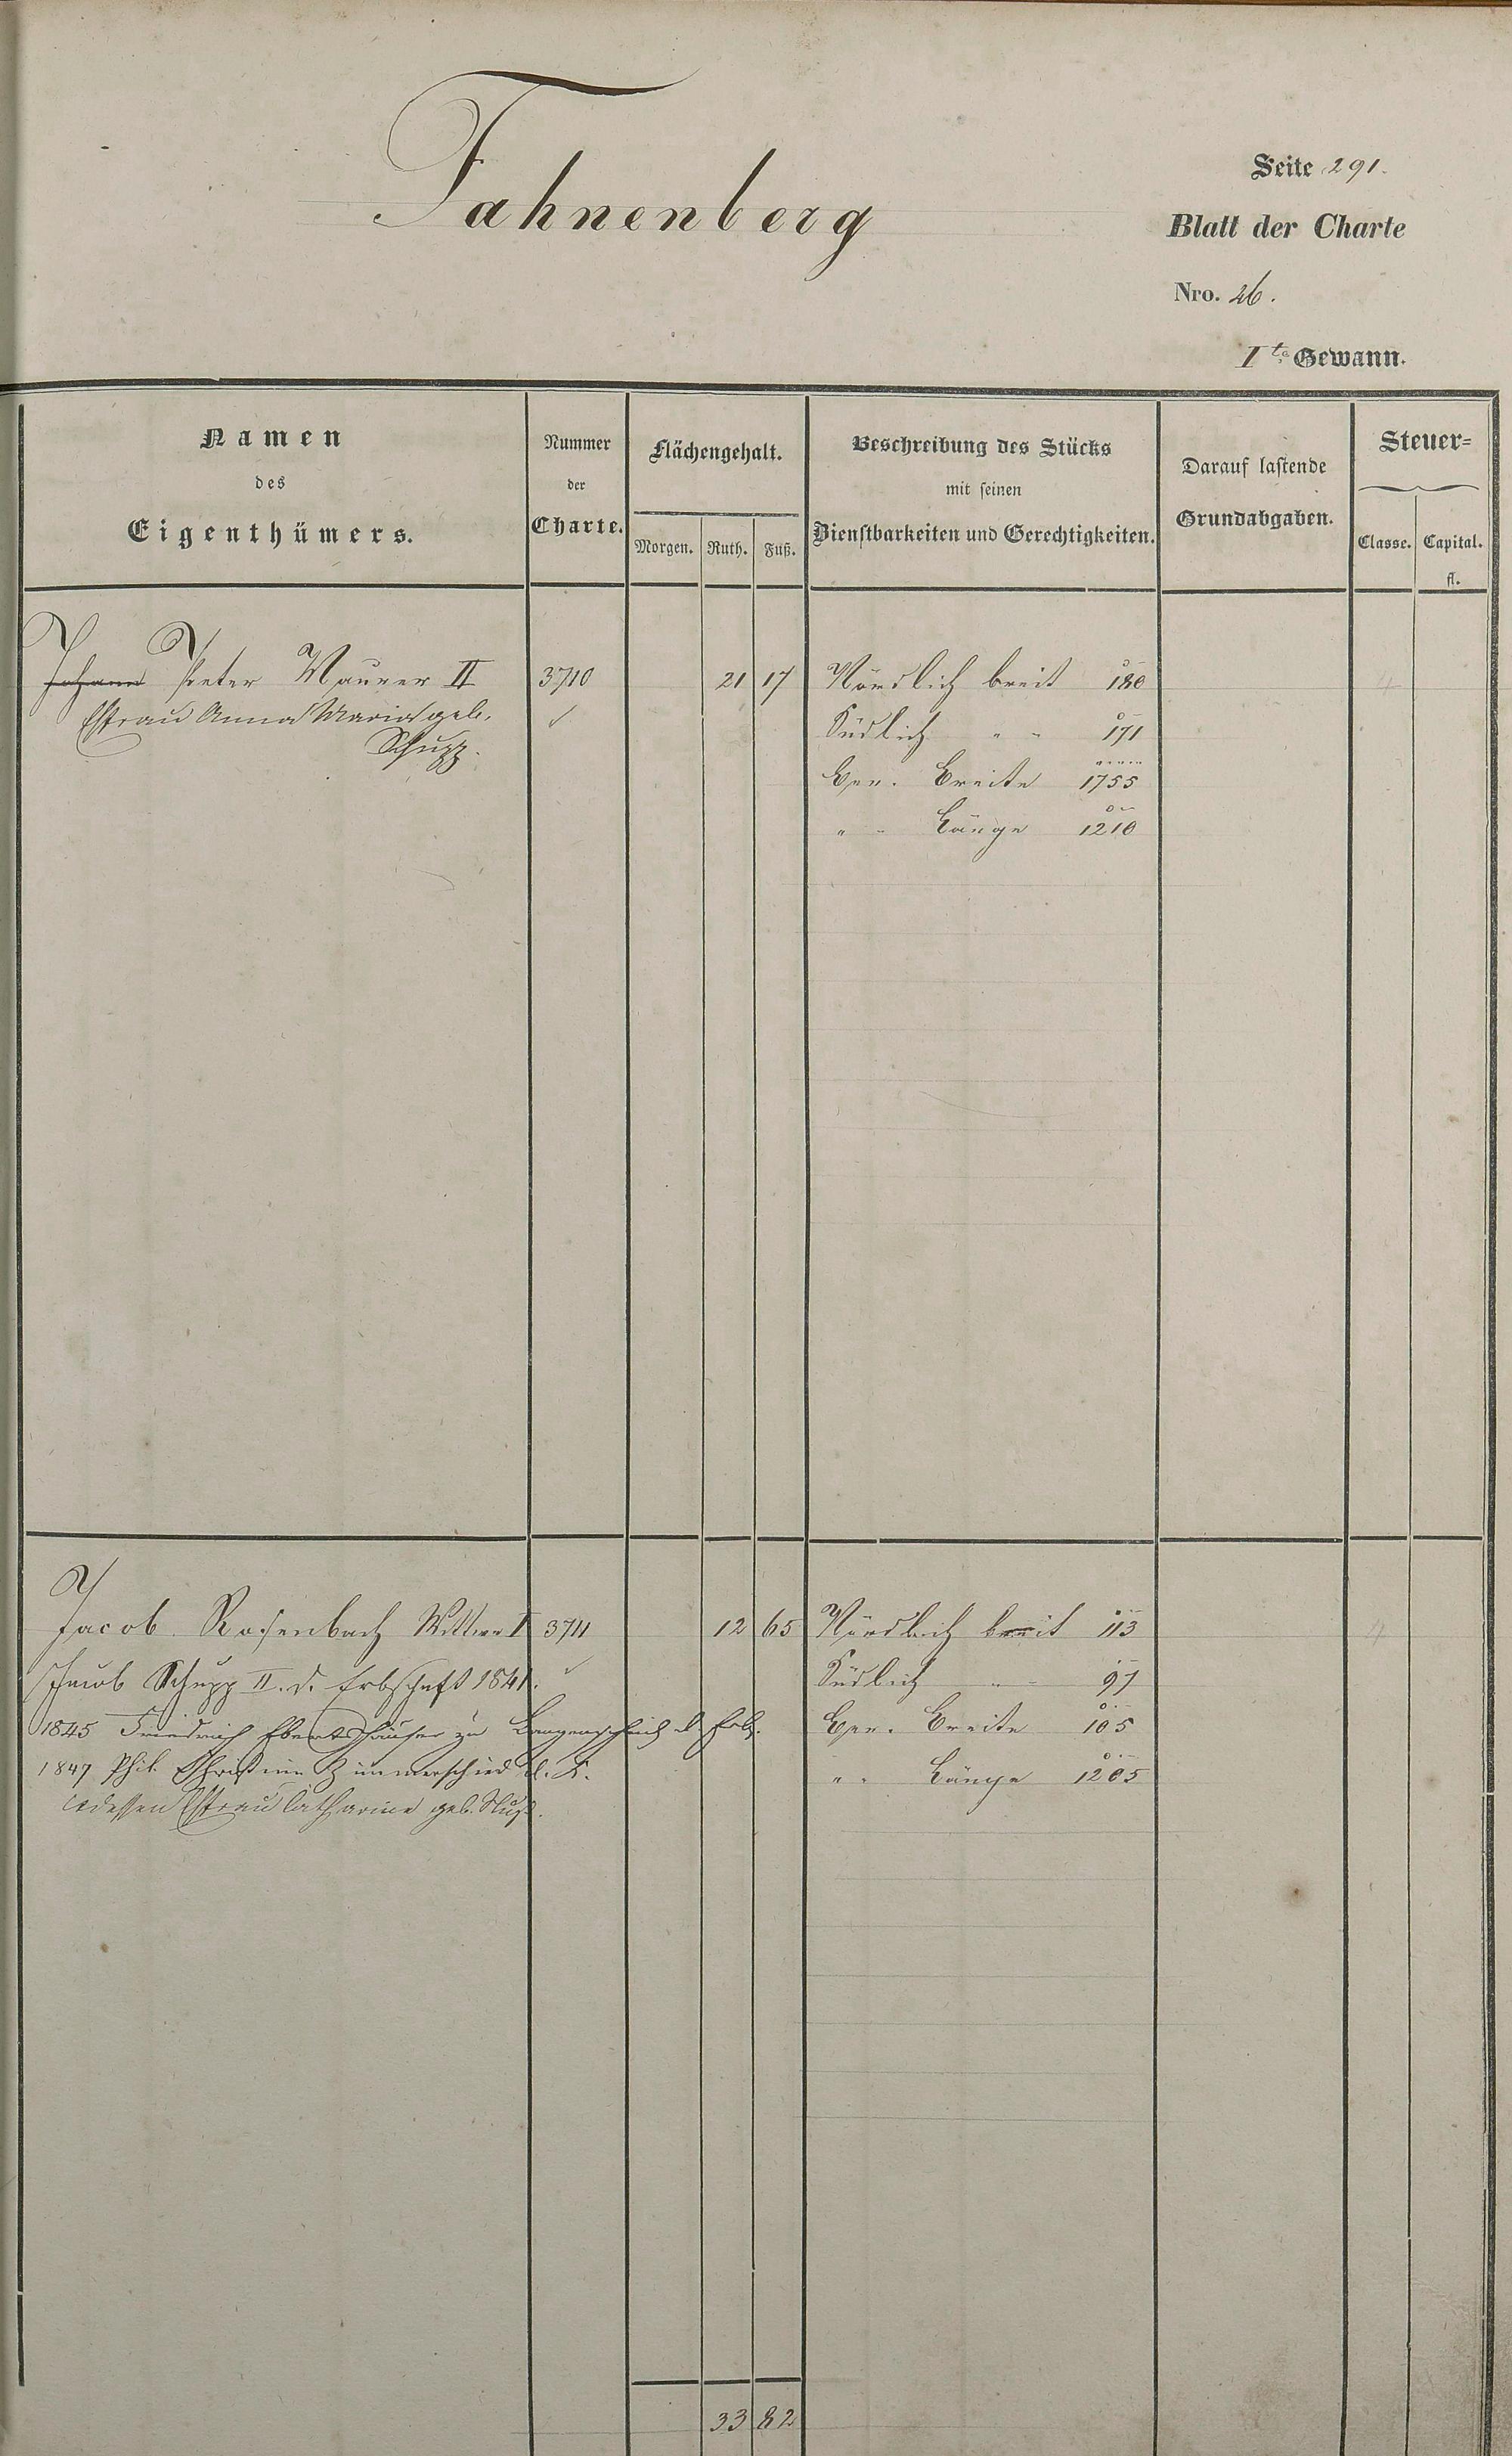 Fahnenberg
Seite 291.
Blatt der Charte
Nro. 26.
I te Gewann.
Namen
des
Eigenthümers.
Nummer
der
Charte.
Flächengehalt.
Morgen. Ruth. Fuß.
Beschreibung des Stücks
mit seinen
Dienstbarkeiten und Gerechtigkeiten.
Darauf lastende
Grundabgaben.
Steuer-
Classe. Capital.
fl.
Johann Peter Maurer II 3710 21 17 Nördlich breit 180 4
Ehefrau Anna Maria geb. Südlich " " 171
Schupp. Ger. Breite 1755
" " Länge 1210
Jacob Rosenbach Wittwe I 3711 12 65 Nördlich breit 113 4
Jacob Schupp II. d. Erbschaft 1841. Südlich " 97
1845 Friedrich Ebertshäuser zu d. Ger. Breite 105
1847 Phil. Zimmerschied d. K. " " Länge 1205
dessen Ehefrau Catharine geb.
33 82